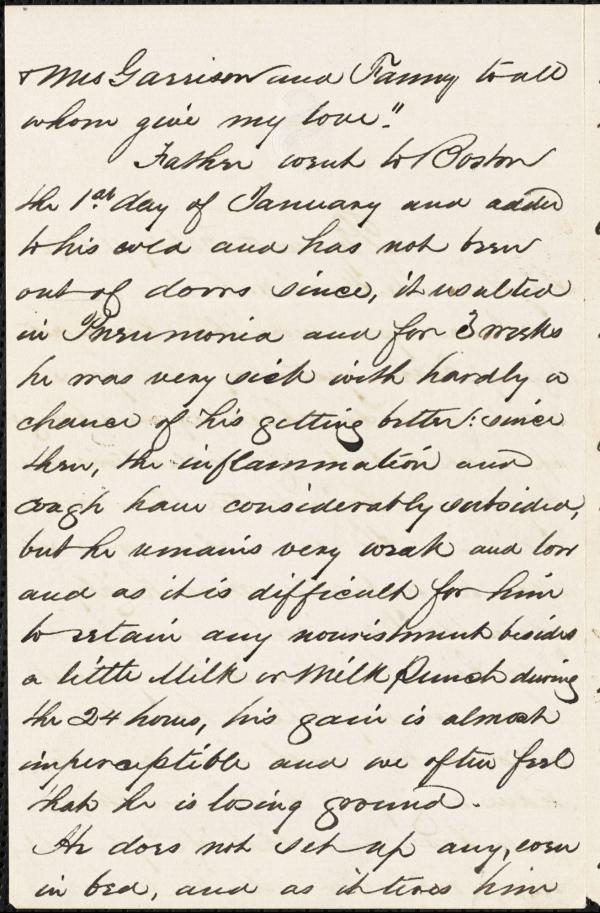 & Mrs Garrison and Fanny to all
whom give my love."
Father went to Boston
the 1st day of January and added
to his cold and has not been
out of doors since, it resulted
in Pneumonia and for 3 weeks
he was very sick with hardly a
chance of his getting better: since
then, the inflammation and
cough have considerably subsided,
but he remains very weak and low
and as it is difficult for him
to retain any nourishment besides
a little Milk or Milk Punch during
the 24 hours, his gain is almost
imperceptible and we often feel
that he is losing ground.
He does not set up any, even
in bed, and as it tires him